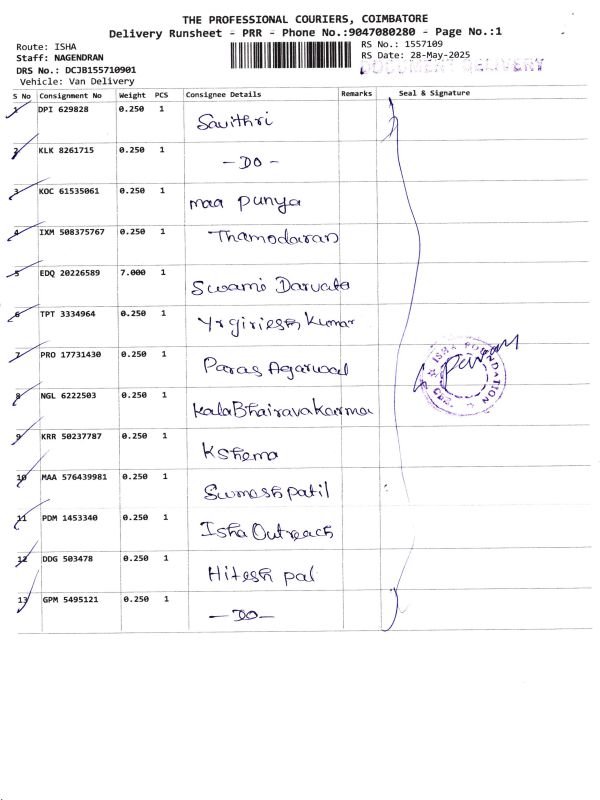 THE PROFESSIONAL COURIERS, COIMBATORE
Delivery Runsheet - PRR - Phone No.:9047080280 - Page No.:1
Route: ISHA
RS No.: 1557109
Staff: NAGENDRAN
RS Date: 28-May-2025
DRS No.: DCJB155710901
DOCUMENT DELIVERY
Vehicle: Van Delivery
S No Consignment No Weight PCS Consignee Details Remarks Seal & Signature
1 DPI 629828 0.250 1 Savithri
2 KLK 8261715 0.250 1 - DO -
3 KOC 61535061 0.250 1 maa punya
4 IXM 508375767 0.250 1 Thamodaran
5 EDQ 20226589 7.000 1 Swami Darvata
6 TPT 3334964 0.250 1 Yrgiriesh Kumar
7 PRO 17731430 0.250 1 Paras Agarwal
8 NGL 6222503 0.250 1 KalaBhairava Karma
9 KRR 50237787 0.250 1 Kshema
10 MAA 576439981 0.250 1 Sumesh patil
11 PDM 1453340 0.250 1 Isha Outreach
12 DDG 503478 0.250 1 Hitesh pal
13 GPM 5495121 0.250 1 - DO -
ISHA FOUNDATION